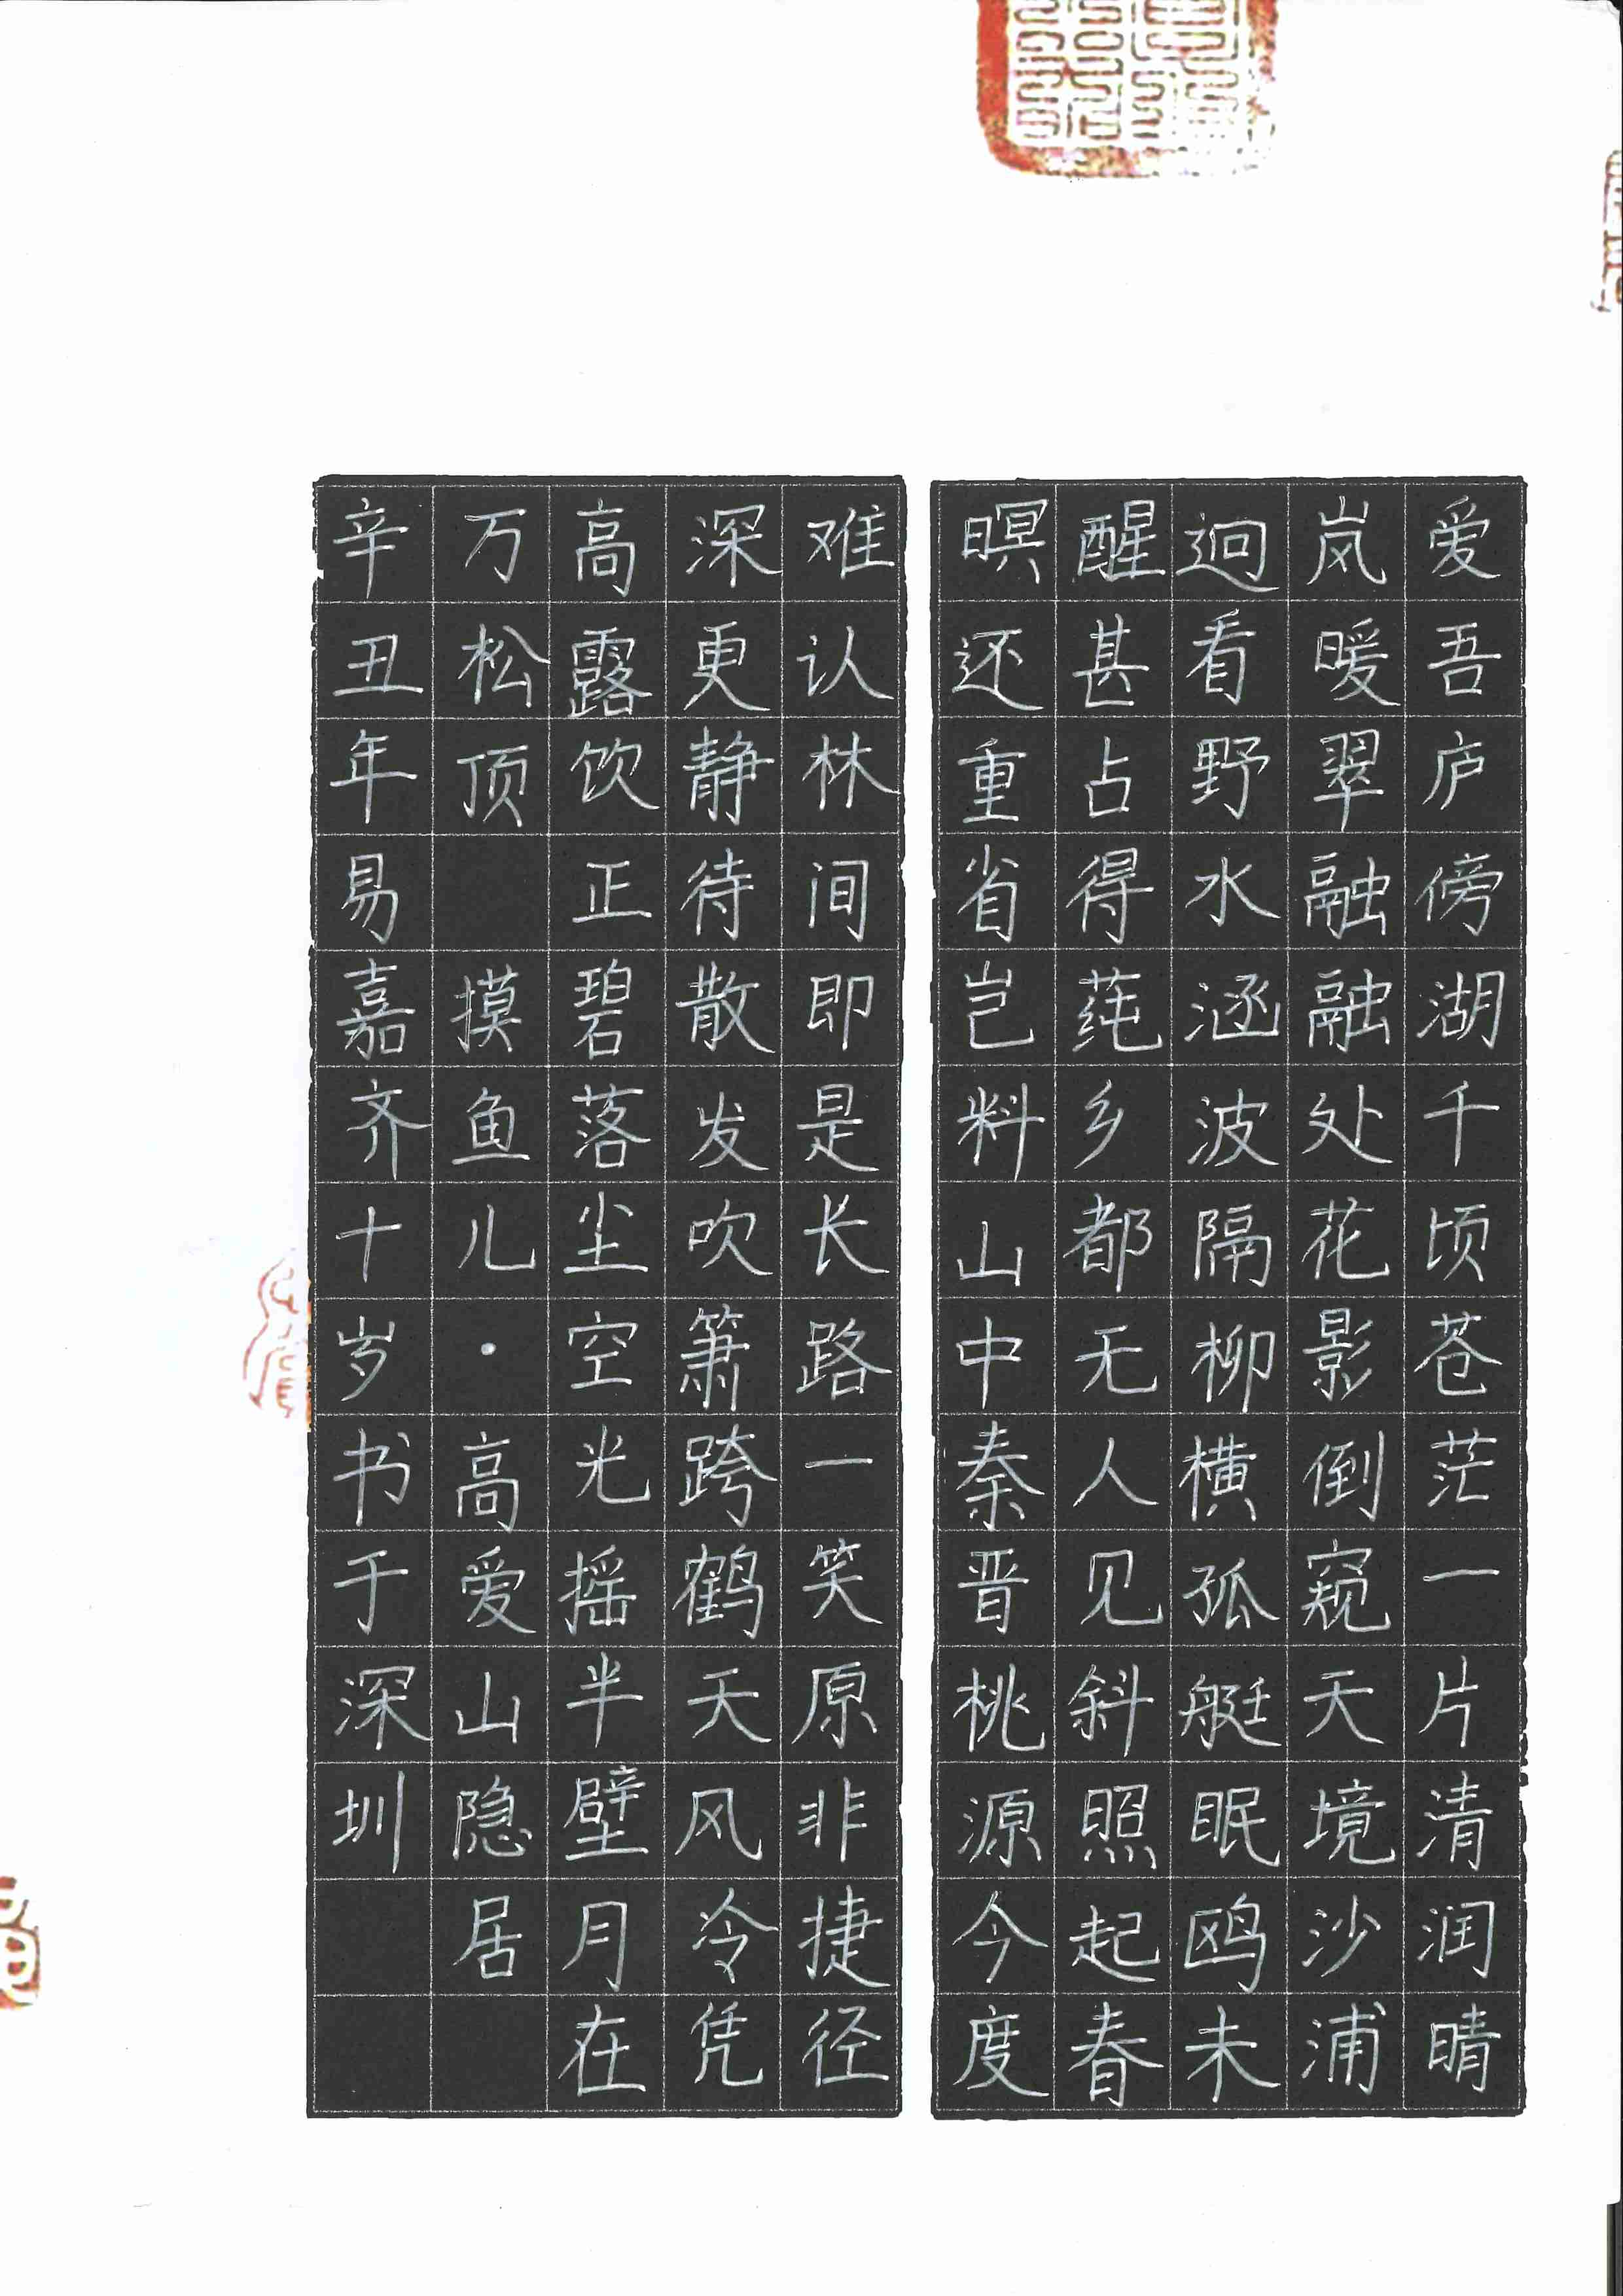 爱吾庐傍湖千顷苍茫一片清润晴
岚暖翠融融处花影倒窥天境沙浦
迥看野水涵波隔柳横孤艇眠鸥未
醒甚占得莼乡都无人见斜照起春
暝还重省岂料山中秦晋桃源今度
难认林间即是长路一笑原非捷径
深更静待散发吹箫跨鹤天风冷凭
高露饮正碧落尘空光摇半壁月在
万松顶 摸鱼儿·高爱山隐居
辛丑年易嘉齐十岁书于深圳